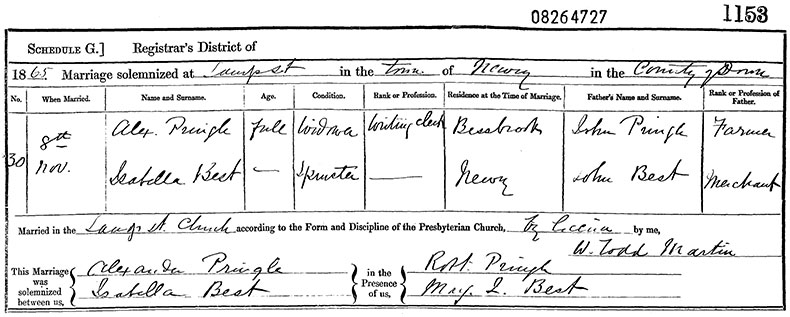 08264727 1153
SCHEDULE G.] Registrar's District of
1865 Marriage solemnized at Sandys St in the town of Newry in the County of Down
No. When Married. Name and Surname. Age. Condition. Rank or Profession. Residence at the Time of Marriage. Father's Name and Surname. Rank or Profession of Father.
30 8th Nov. Alex. Pringle full Widower Writing clerk Bessbrook John Pringle Farmer
Isabella Best — Spinster — Newry John Best Merchant
Married in the Sandys St. Church according to the Form and Discipline of the Presbyterian Church, by licence by me,
W. Todd Martin
This Marriage was solemnized between us, { Alexander Pringle } in the Presence of us, { Robt. Pringle
Isabella Best Best